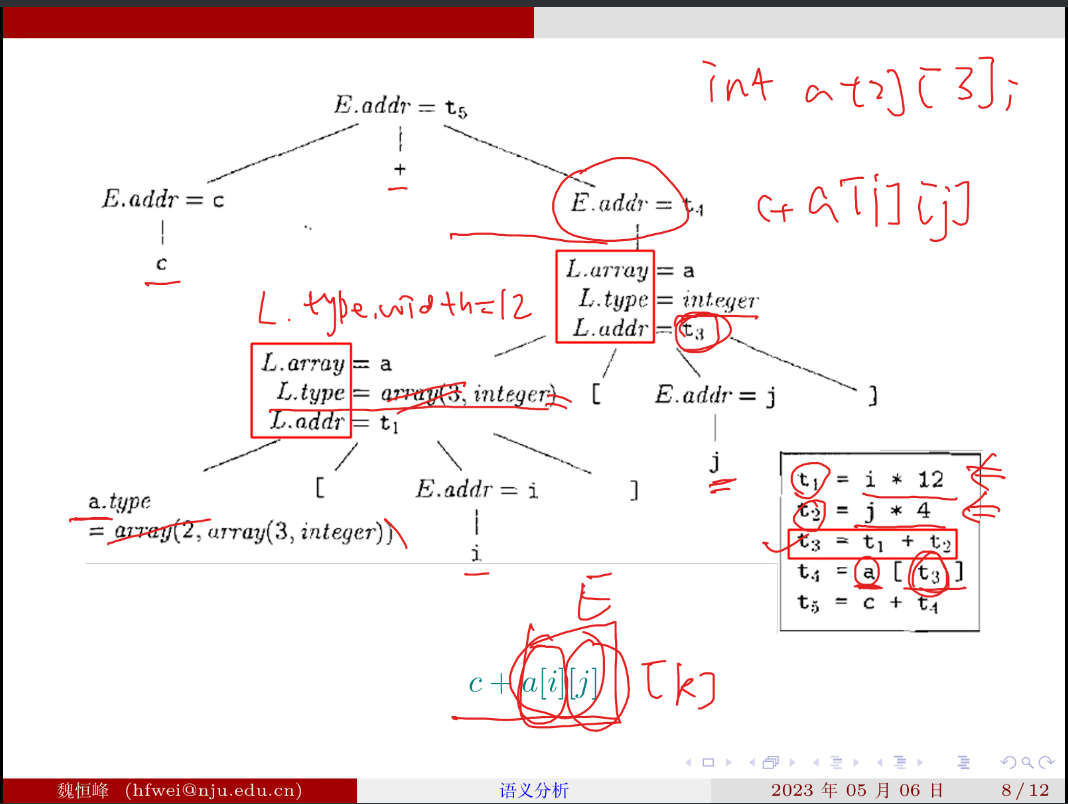 int a[2][3];
E.addr = t5
+
E.addr = c
E.addr = t4
c+ a[i][j]
c
L.array = a
L.type = integer
L.addr = t3
L.type.width=12
L.array = a
L.type = array(3, integer)
L.addr = t1
[
E.addr = j
]
j
a.type
= array(2, array(3, integer))
[
E.addr = i
]
i
t1 = i * 12
t2 = j * 4
t3 = t1 + t2
t4 = a [ t3 ]
t5 = c + t4
E
c + a[i][j] [k]
魏恒峰 (hfwei@nju.edu.cn)
语义分析
2023 年 05 月 06 日
8 / 12